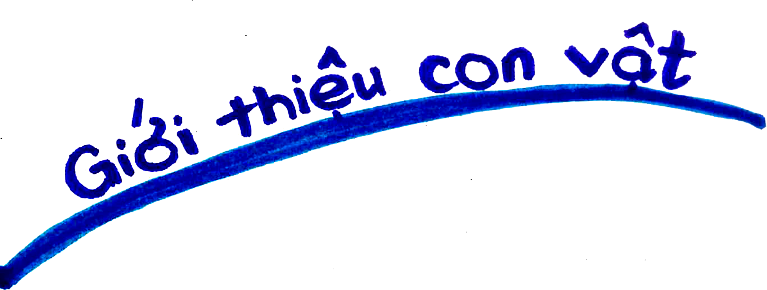 Giới thiệu con vật